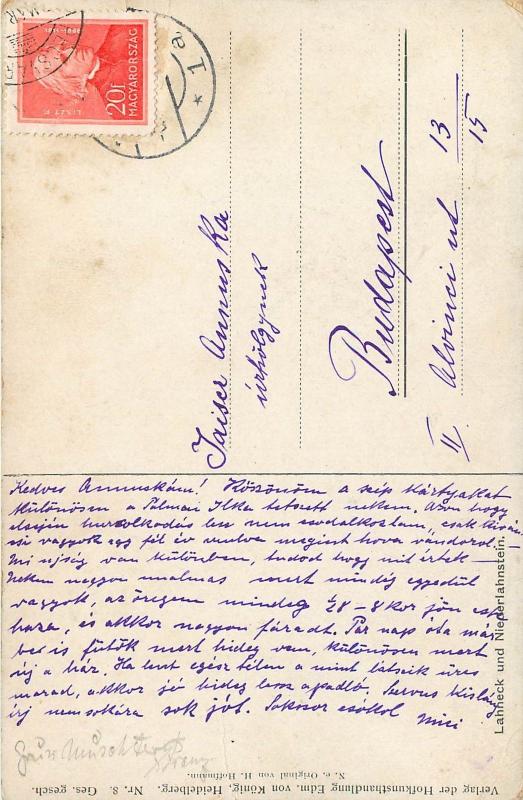 20f
MAGYARORSZÁG
LISZT F.
Jaiser Annuska
úrhölgynek
Budapest
II Alvinci ut 13
15
Kedves Annuskám! Köszönöm a szép kártyákat
különösen a Pálmai Ilka tetszett nekem. Azon hogy
hurcolkodás lesz nem csodálkoztam, csak
vagyok egy fél év mulva megint hova vándorol.
Mi ujság van különben, tudod hogy mit értek –
Nekem nagyon unalmas mert mindig egyedül
vagyok, az öregem mindég ½8–8 kor jön
haza, és akkor nagyon fáradt. Pár nap óta már
be is fütök mert hideg van, különösen mert
új a ház. Ha lent egész télen a mint látszik üres
marad, akkor jó hideg lesz a padló. Servus kislány
irj nemsokára sok jót. Sokszor csókol Mici
Verlag der Hofkunsthandlung Edm. von König, Heidelberg. Nr. 8. Ges. gesch.
N. e. Original von H. Hoffmann.
Lahneck und Niederlahnstein.